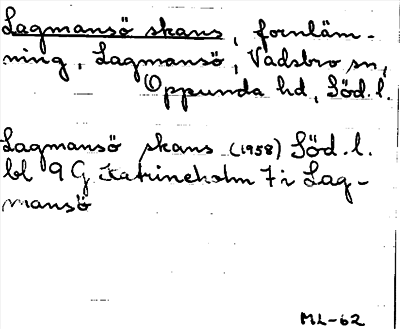 Lagmansö skans, fornläm-
ning, Lagmansö, Vadsbro sn,
Oppunda hd, Söd. l.
Lagmansö skans (1958) Söd. l.
bl 9 G Katrineholm 7i Lag-
mansö
ML-62